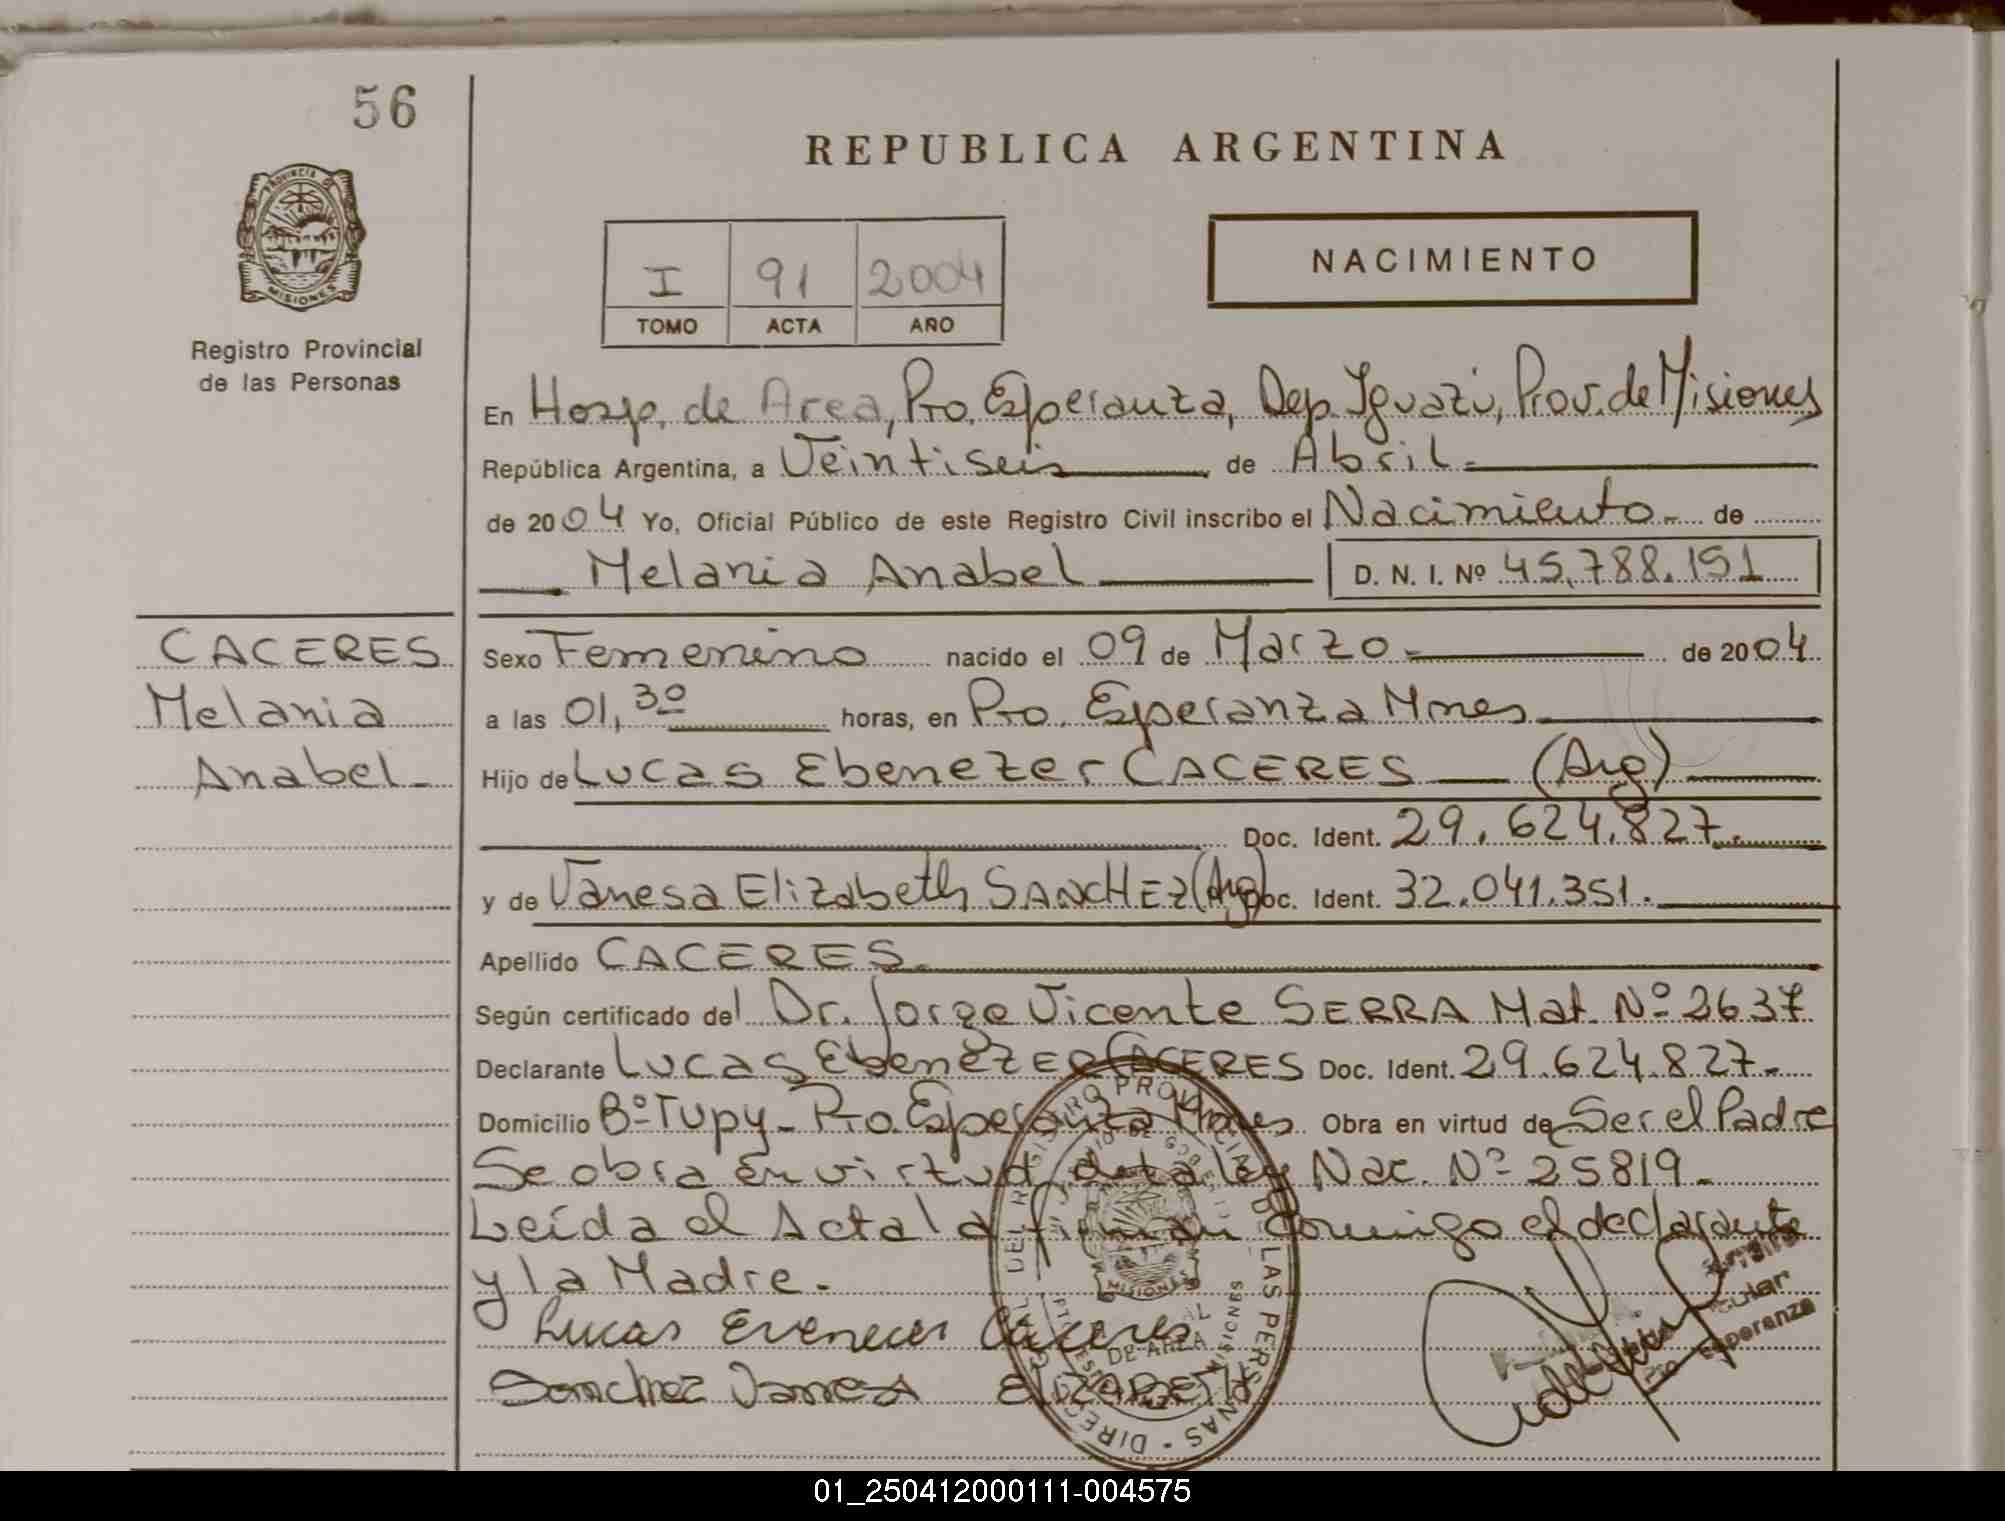 56
REPUBLICA ARGENTINA
PROVINCIA DE
MISIONES
Registro Provincial
de las Personas
I 91 2004
TOMO ACTA AÑO
NACIMIENTO
En Hosp. de Area, Pto. Esperanza, Dep. Iguazú, Prov. de Misiones
República Argentina, a Veintiseis de Abril.
de 2004 Yo, Oficial Público de este Registro Civil inscribo el Nacimiento. de
Melania Anabel D. N. I. Nº 45.788.151
CACERES
Melania
Anabel
Sexo Femenino nacido el 09 de Marzo. de 2004
a las 01,30 horas, en Pto. Esperanza Mnes
Hijo de Lucas Ebenezer CACERES (Arg)
Doc. Ident. 29.624.827.
y de Vanesa Elizabeth SANCHEZ (Arg) Doc. Ident. 32.041.351.
Apellido CACERES.
Según certificado del Dr. Jorge Vicente SERRA Mat. Nº 2637
Declarante Lucas EbenEZER CACERES Doc. Ident. 29.624.827.
Domicilio Bº Tupy - Pto. Esperanza Mnes Obra en virtud de Ser el Padre
Se obra en virtud de la ley Nac. Nº 25819.
Leída el Acta la firman conmigo el declarante
y la Madre.
Lucas Evenecer Caceres
Sanchez Vanesa ElIZABETH
DIRECCION DEL REGISTRO PROVINCIAL DE LAS PERSONAS
MISIONES
DE AREA
Titular
Pto Esperanza
01_250412000111-004575